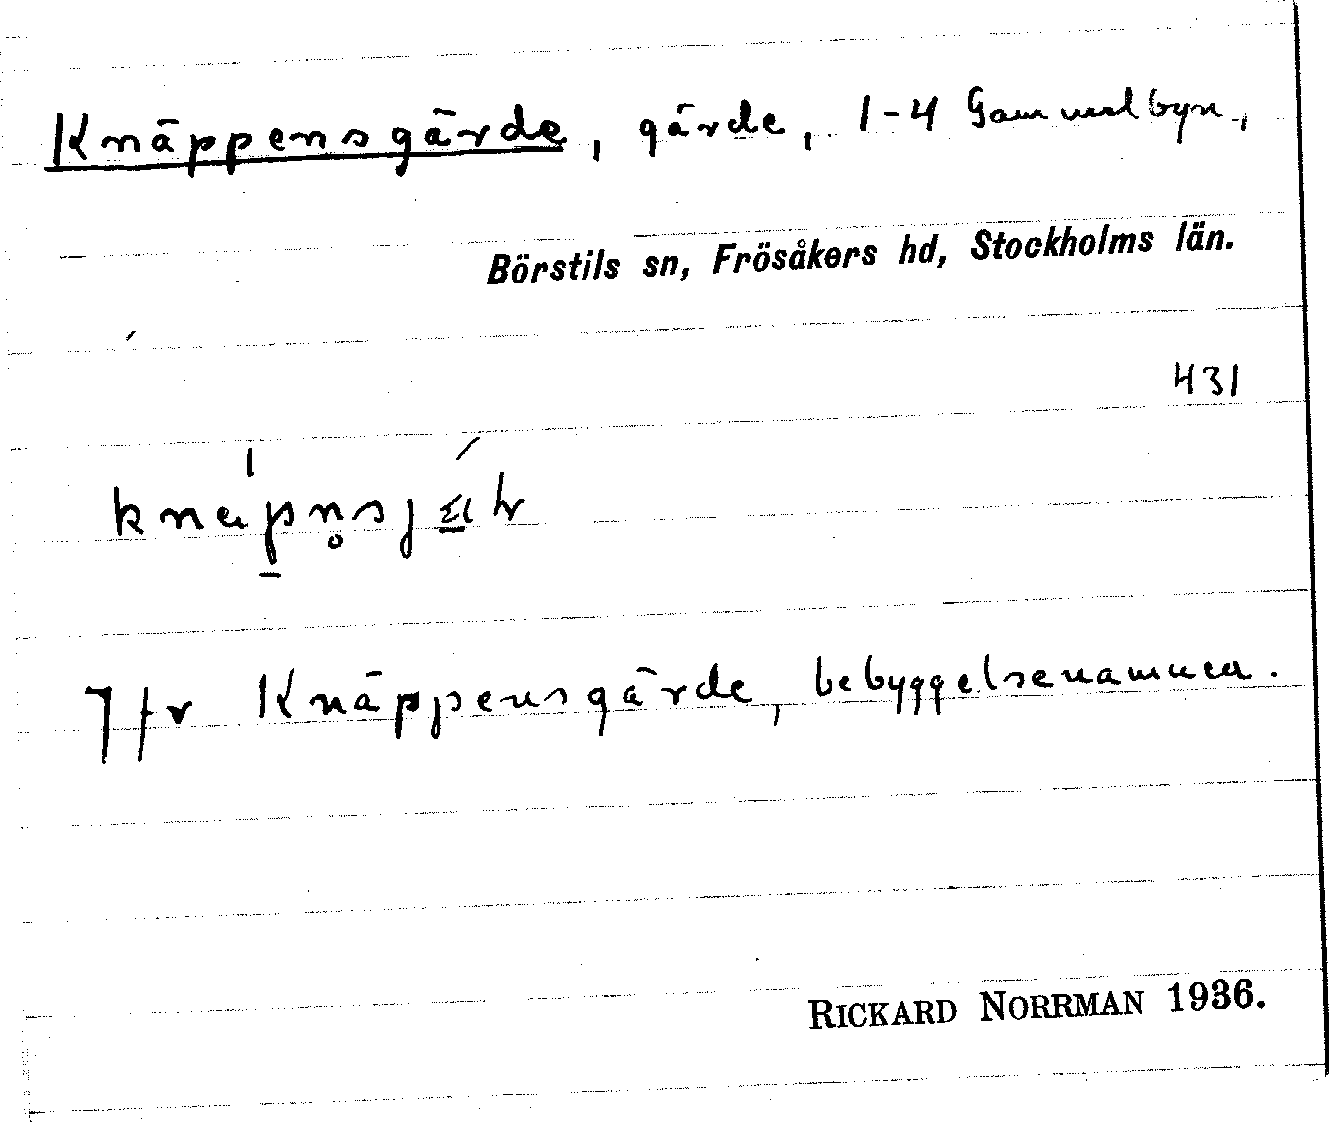 Knäppensgärde, gärde, 1-4 Gammelbyn,
Börstils sn, Frösåkers hd, Stockholms län.
431
Jfr Knäppensgärde, bebyggelsenamnen.
RICKARD NORRMAN 1936.